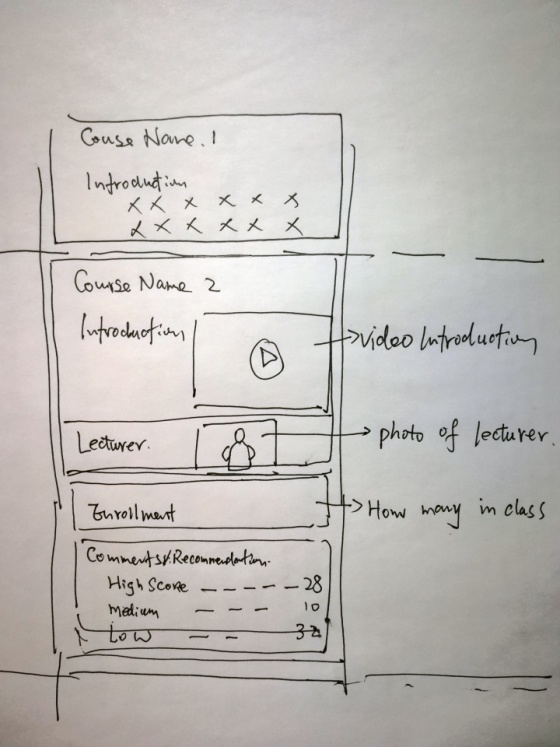 Couse Name. 1
Introduction
X X X X X X
X X X X X X
Course Name 2
Introduction
Video Introduction
Lecturer.
photo of lecturer.
Enrollment
How many in class
Comments & Recommendation.
High Score ----- 28
Medium --- 10
Low -- 32